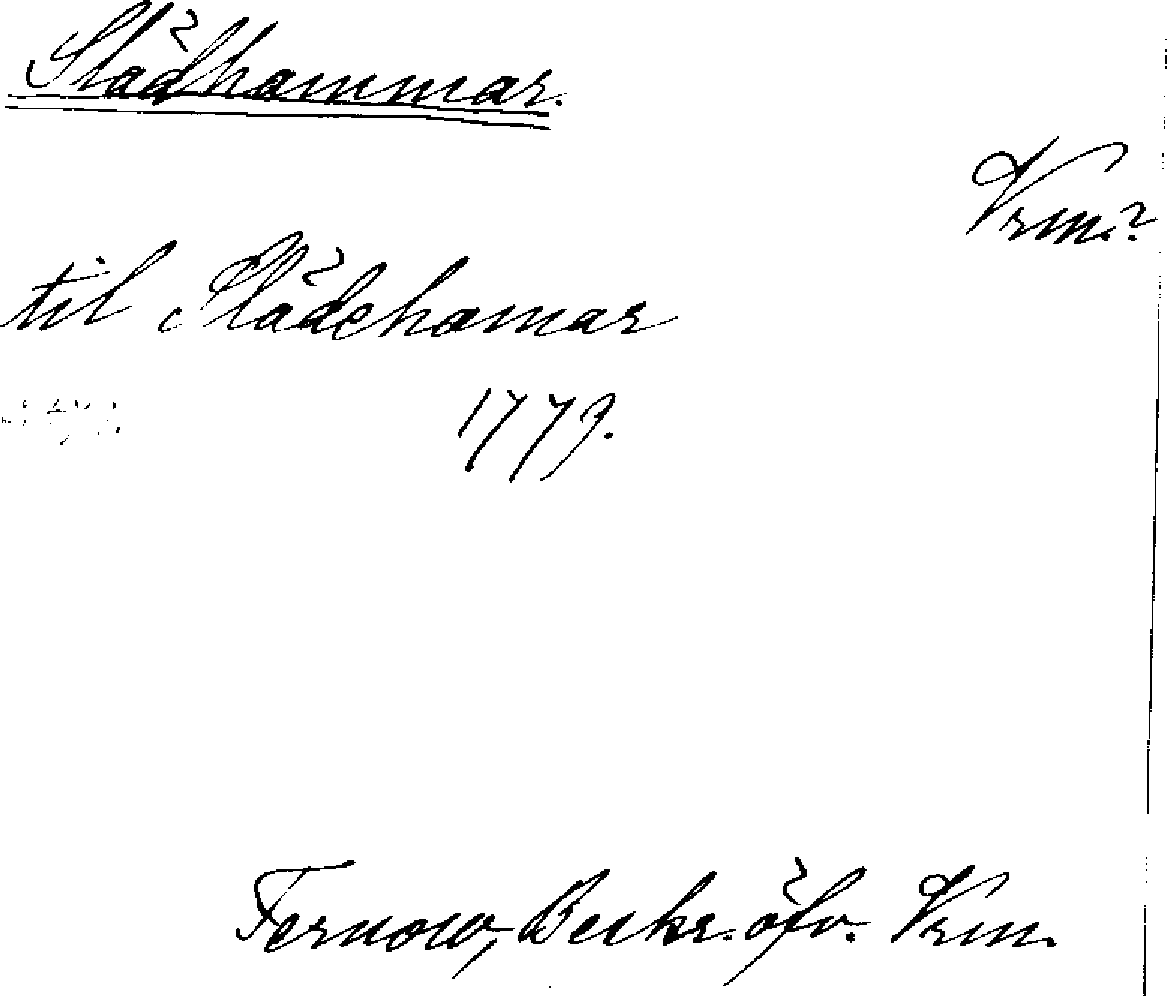 Slädhammar.
Vrm.?
til Slädehamar
1779.
Fernow, Beskr. öfv. Vrm.